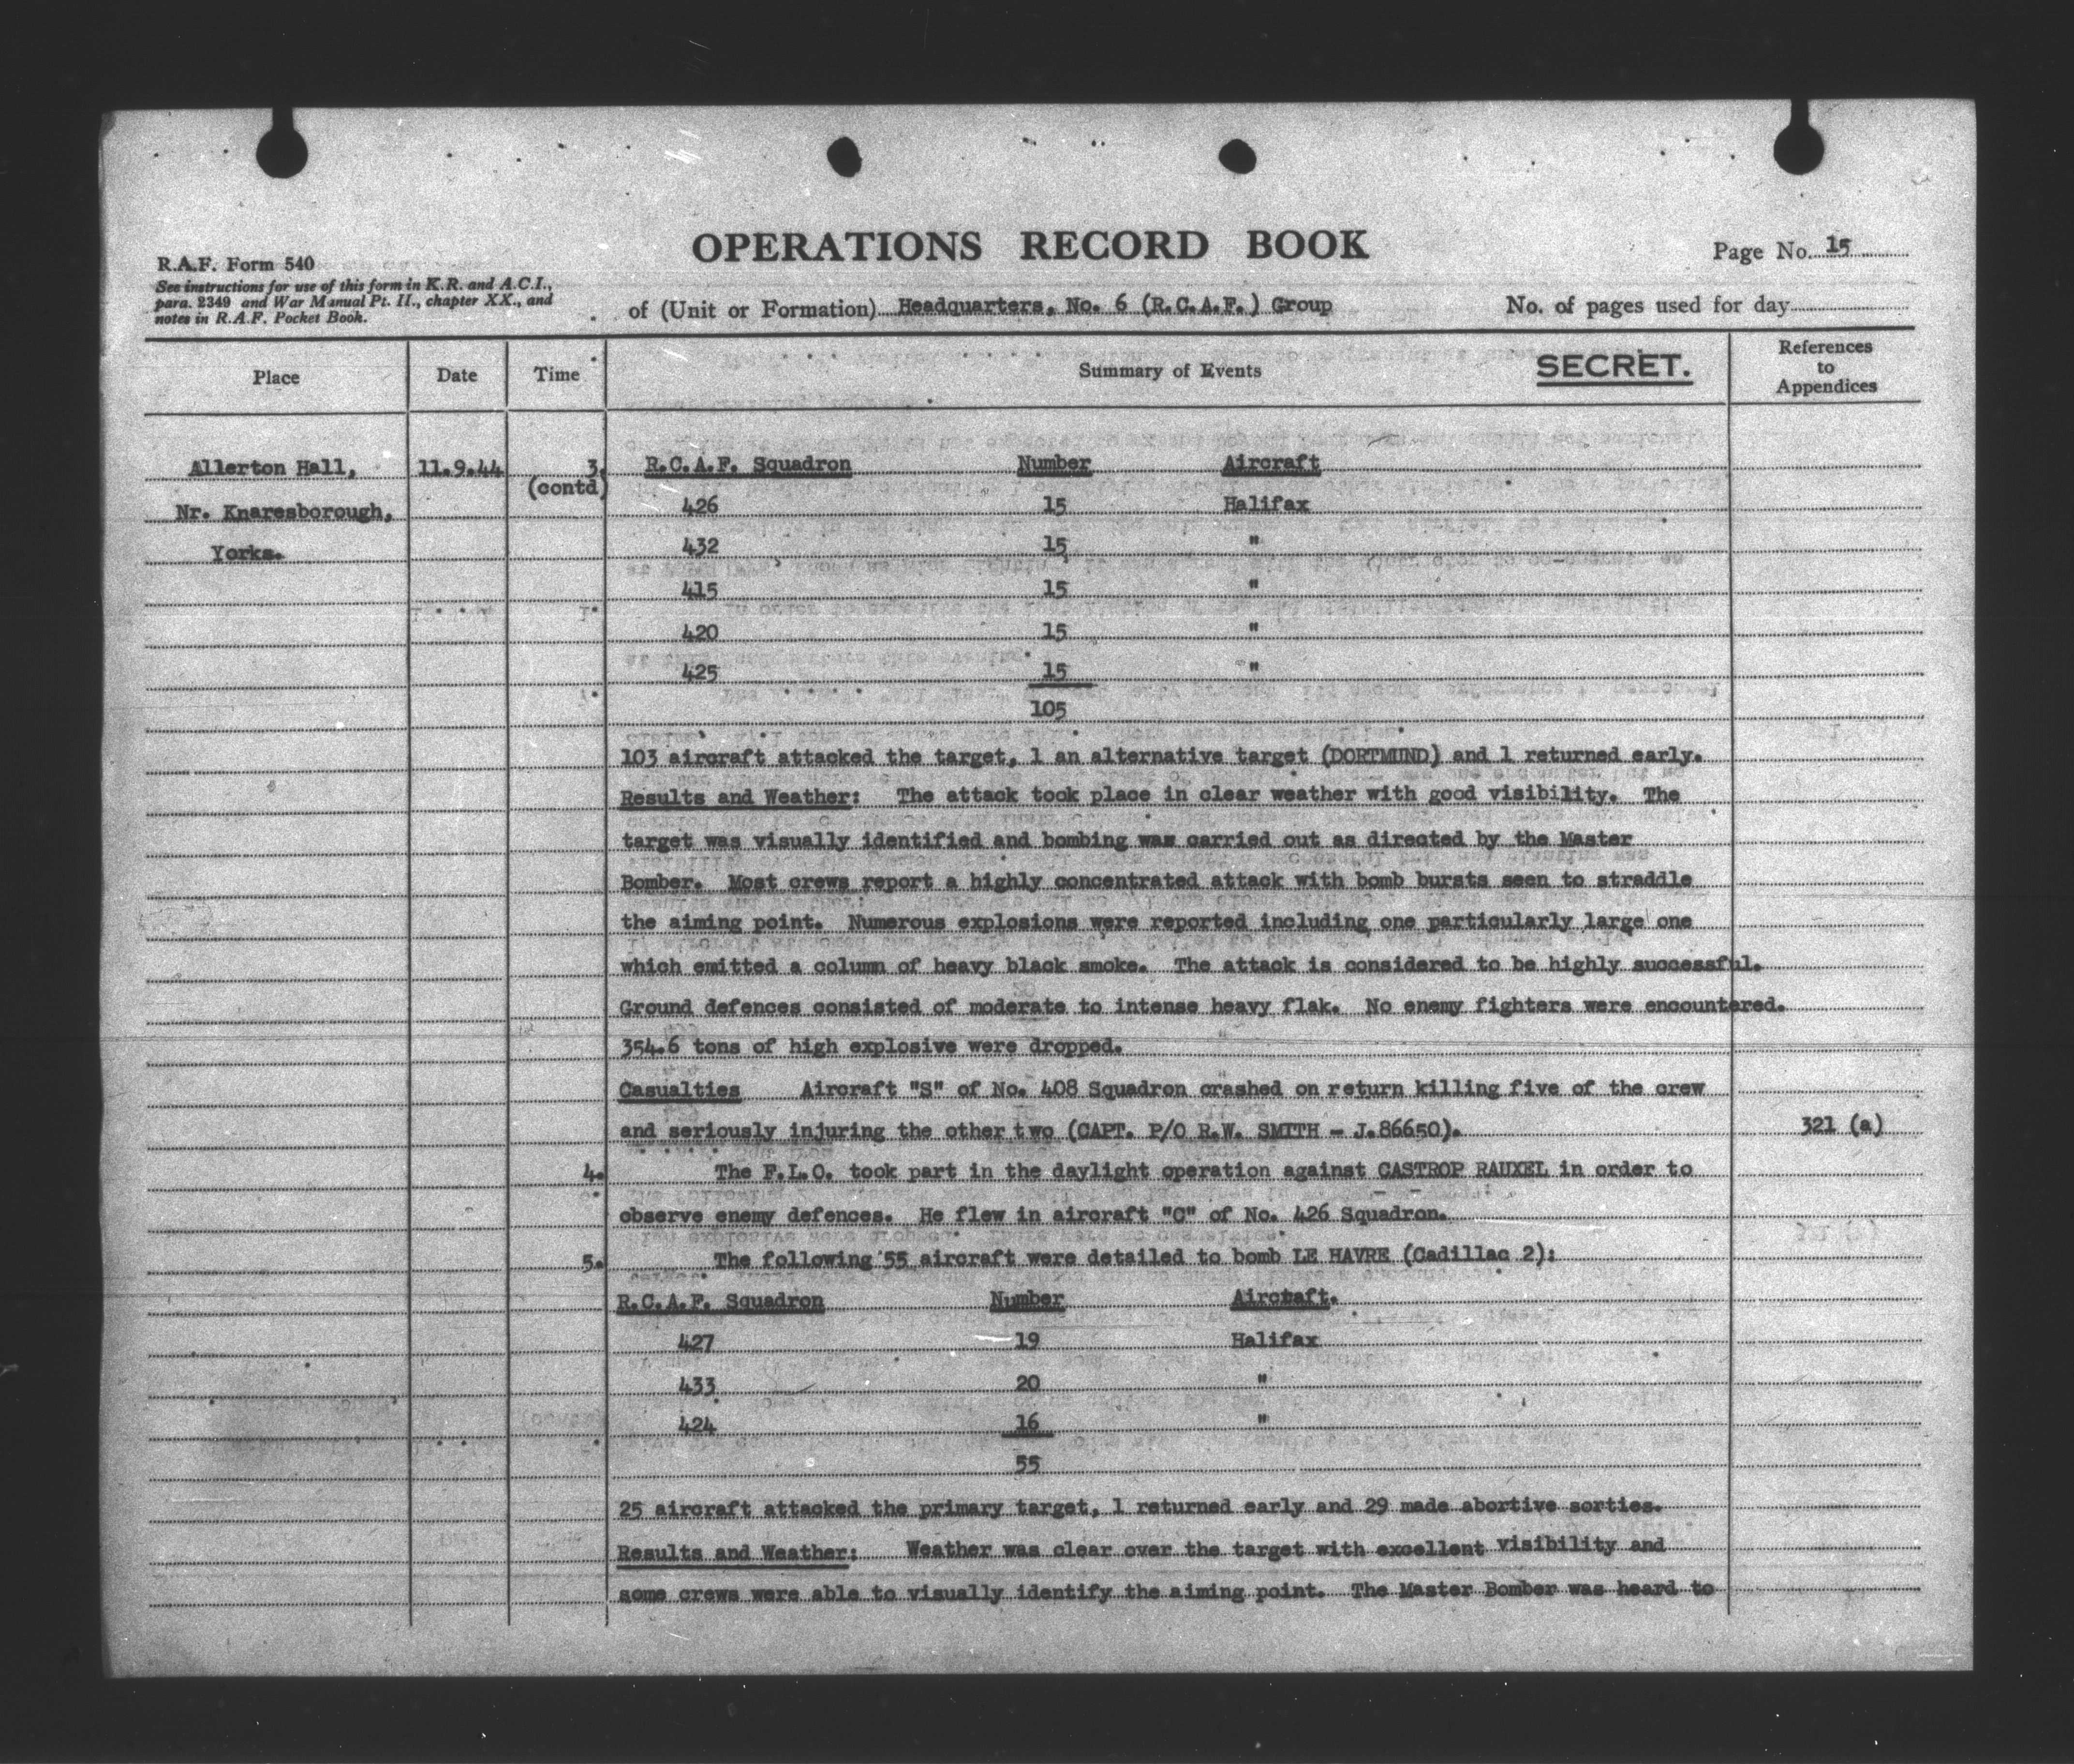 OPERATIONS RECORD BOOK
Page No. 15
R.A.F. Form 540
See instructions for use of this form in K.R. and A.C.I.,
para. 2349 and War Manual Pt. II., chapter XX., and
notes in R.A.F. Pocket Book.
of (Unit or Formation) Headquarters, No. 6 (R.C.A.F.) Group
No. of pages used for day
Place Date Time Summary of Events SECRET. References to Appendices
Allerton Hall, 11.9.44 3. R.C.A.F. Squadron Number Aircraft
(contd)
Nr. Knaresborough, 426 15 Halifax
Yorks. 432 15 "
415 15 "
420 15 "
425 15 "
105
103 aircraft attacked the target, 1 an alternative target (DORTMUND) and 1 returned early.
Results and Weather: The attack took place in clear weather with good visibility. The
target was visually identified and bombing was carried out as directed by the Master
Bomber. Most crews report a highly concentrated attack with bomb bursts seen to straddle
the aiming point. Numerous explosions were reported including one particularly large one
which emitted a column of heavy black smoke. The attack is considered to be highly successful.
Ground defences consisted of moderate to intense heavy flak. No enemy fighters were encountered.
354.6 tons of high explosive were dropped.
Casualties Aircraft "S" of No. 408 Squadron crashed on return killing five of the crew
and seriously injuring the other two (CAPT. P/O R.W. SMITH - J.86650). 321 (a)
4. The F.L.O. took part in the daylight operation against CASTROP RAUXEL in order to
observe enemy defences. He flew in aircraft "C" of No. 426 Squadron.
5. The following 55 aircraft were detailed to bomb LE HAVRE (Cadillac 2):
R.C.A.F. Squadron Number Aircraft.
427 19 Halifax
433 20 "
424 16 "
55
25 aircraft attacked the primary target, 1 returned early and 29 made abortive sorties.
Results and Weather: Weather was clear over the target with excellent visibility and
some crews were able to visually identify the aiming point. The Master Bomber was heard to